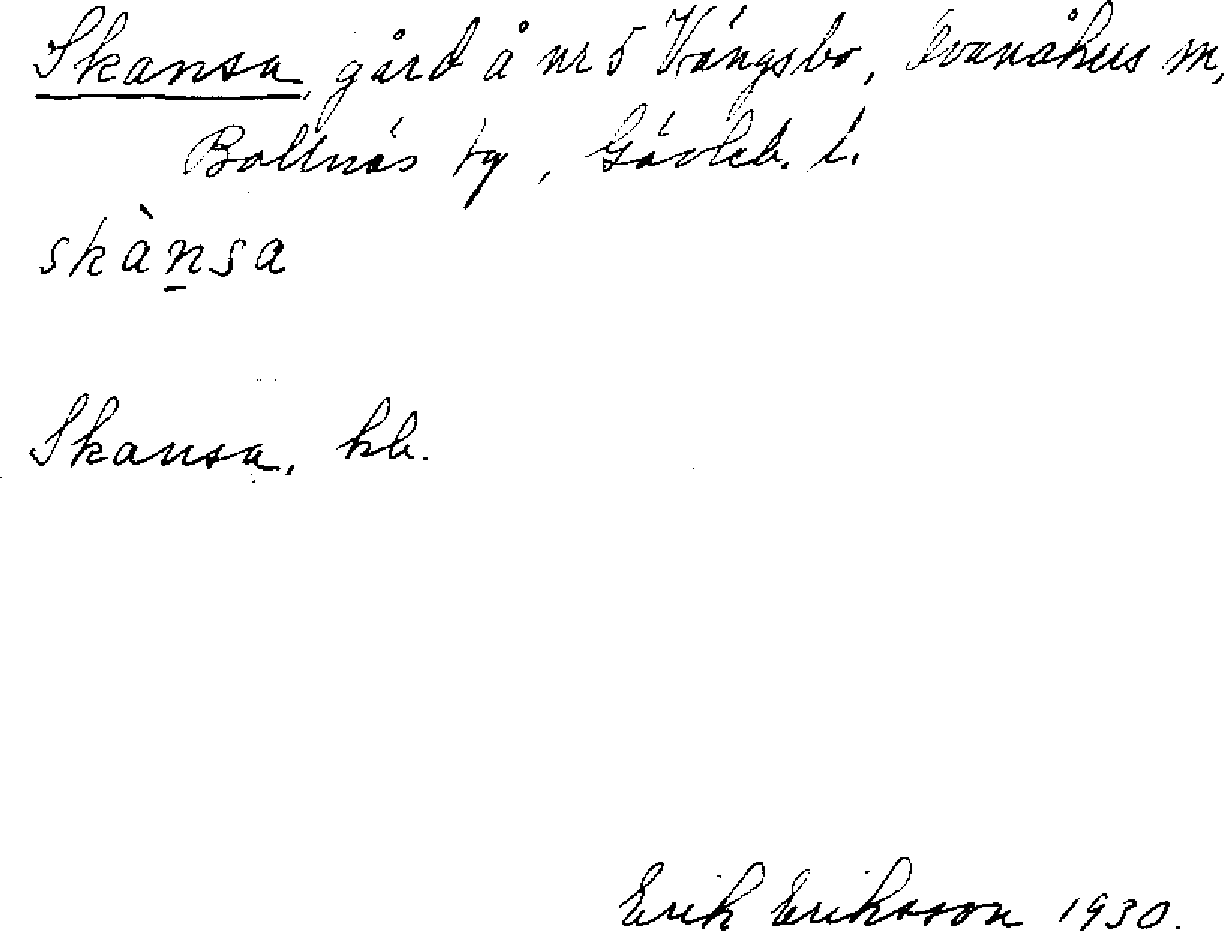 Skansa, gård å nr 5 Vängsbo, Ovanåkers sn,
Bollnäs tg, Gävleb. l.
skànsa
Skansa, kb.
Erik Eriksson 1930.